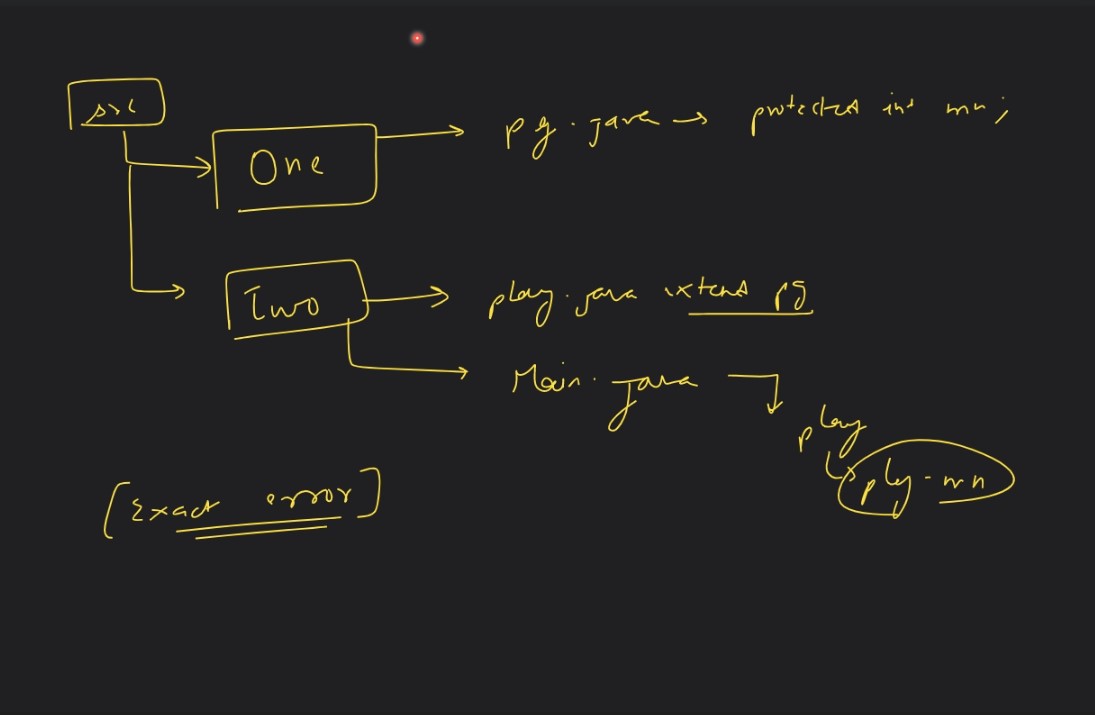 src
One
pg.java → protected int mn;
Two
play.java extend pg
Main.java
play
ply.mn
[Exact error]